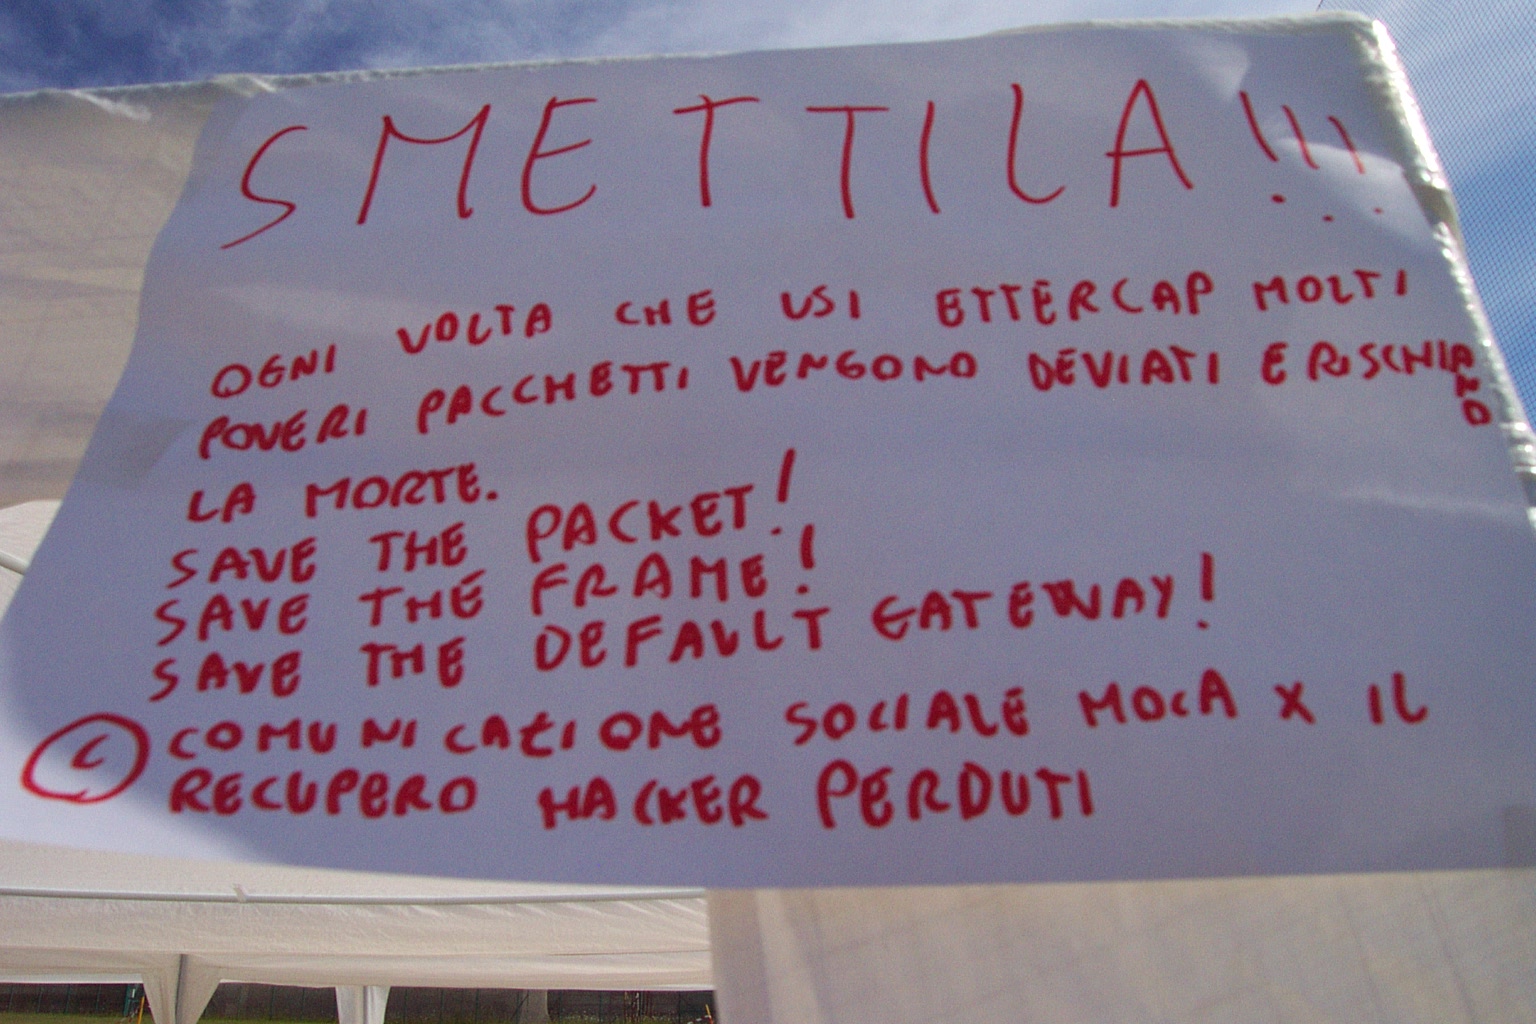 SMETTILA!!!
OGNI VOLTA CHE USI ETTERCAP MOLTI
POVERI PACCHETTI VENGONO DEVIATI E RISCHIANO
LA MORTE.
SAVE THE PACKET!
SAVE THE FRAME!
SAVE THE DEFAULT GATEWAY!
© COMUNICAZIONE SOCIALE MOCA X IL
RECUPERO HACKER PERDUTI